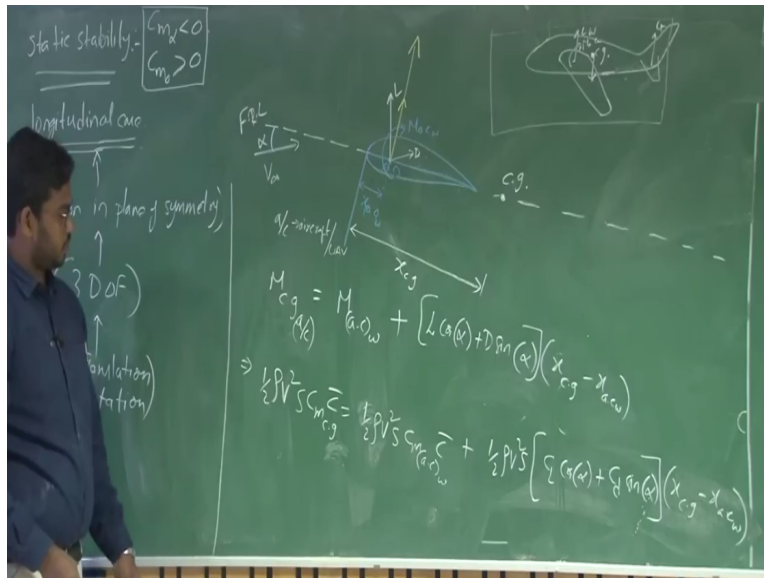 static stability:- C_mα < 0
C_m0 > 0
longitudinal case
in plane of symmetry)
3 DOF)
FRL
α
V∞
L
D
M a.c.w
c.g.
a/c → aircraft/UAV
x c.g
M c.g (a/c) = M (a.c)w + [L cos(α) + D sin(α)](x c.g - x a.c.w)
⇒ ½ρV²S C_m c.g c̄ = ½ρV²S C_m (a.c)w c̄ + ½ρV²S [C_L cos(α) + C_d sin(α)](x c.g - x a.c.w)
c.g.